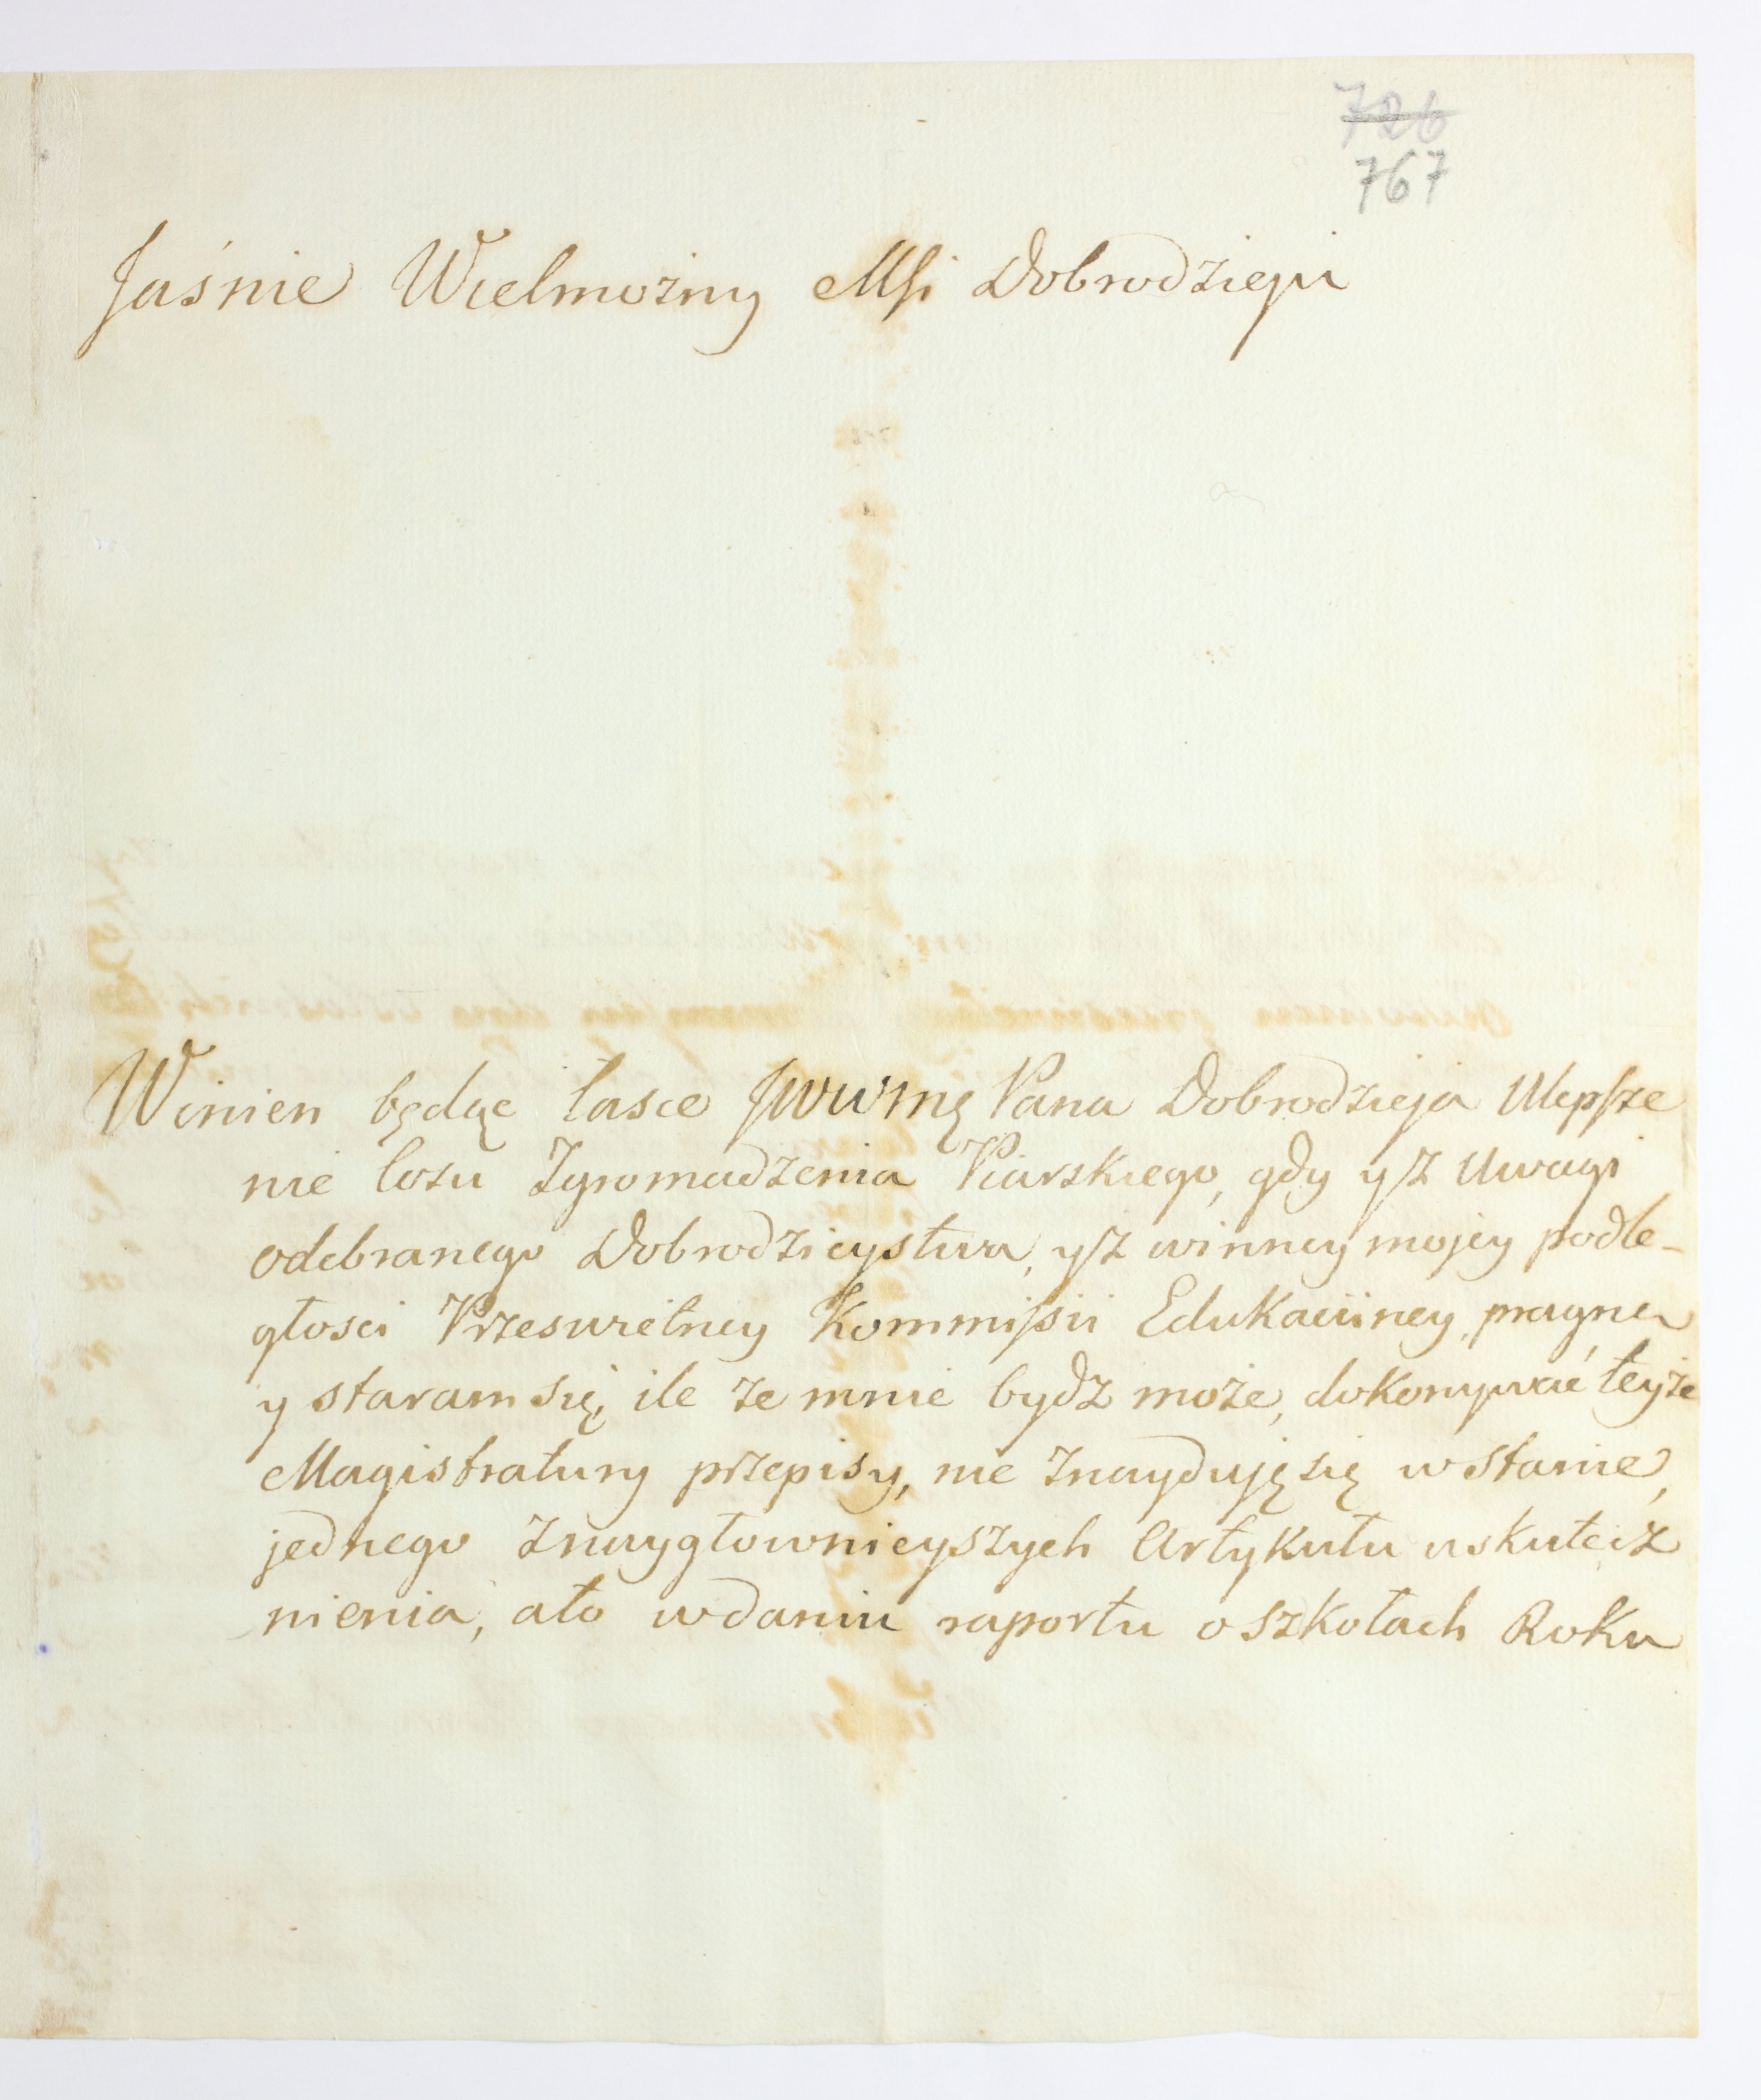 726
767
Jaśnie Wielmożny Mści Dobrodzieju
Winien będąc łasce JWWMę Pana Dobrodzieja Ulepsze
nie losu Zgromadzenia Piarskiego, gdy y z Uwagi
odebranego Dobrodzieystwa, y z winney mojey podle-
głosci Prześwietney Kommissii Edukaciiney, pragnę
y staram się, ile ze mnie bydz może, dokonywać teyże
Magistratury przepisy, nie znayduję się w stanie,
jednego z nayglownieyszych Artykułu uskutecz
nienia, a to w daniu raportu o szkołach Roku